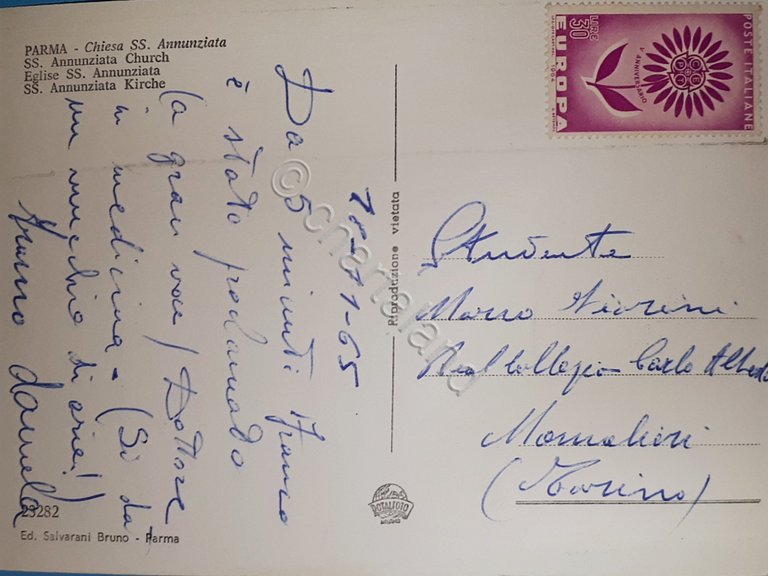 PARMA - Chiesa SS. Annunziata
SS. Annunziata Church
Eglise SS. Annunziata
SS. Annunziata Kirche
18-11-65
Da 5 minuti Franco
è stato proclamato
(a gran voce) Dottore
in medicina - (Si dà
un mucchio di arie!)
Franco Daniela
23282
Ed. Salvarani Bruno - Parma
Riproduzione vietata
ROTALFOTO
MILANO
POSTE ITALIANE
LIRE 30
EUROPA
V° ANNIVERSARIO
CEPT
1964
Studente
Marco Fiorini
Real Collegio Carlo Alberto
Moncalieri
(Torino)
© chartaland